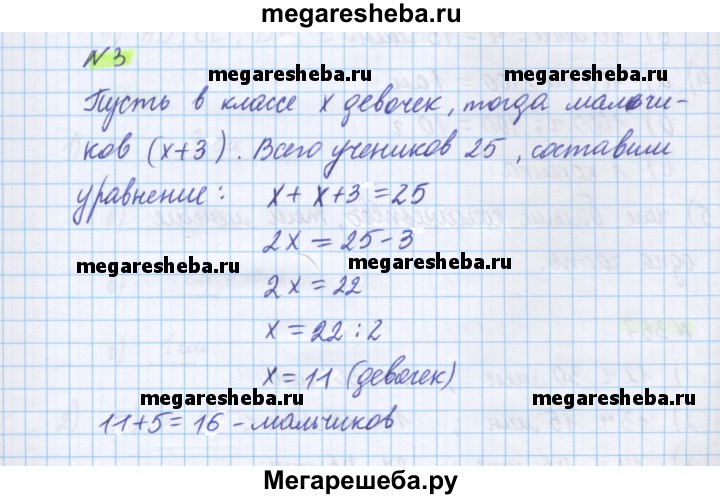 megaresheba.ru
N 3
megaresheba.ru megaresheba.ru
Пусть в классе x девочек, тогда мальчи-
ков (x+3). Всего учеников 25, составим
уравнение: x + x+3 = 25
2x = 25-3
megaresheba.ru megaresheba.ru
2x = 22
x = 22 : 2
x = 11 (девочек)
megaresheba.ru megaresheba.ru
11+5= 16 - мальчиков
Мегарешеба.ру